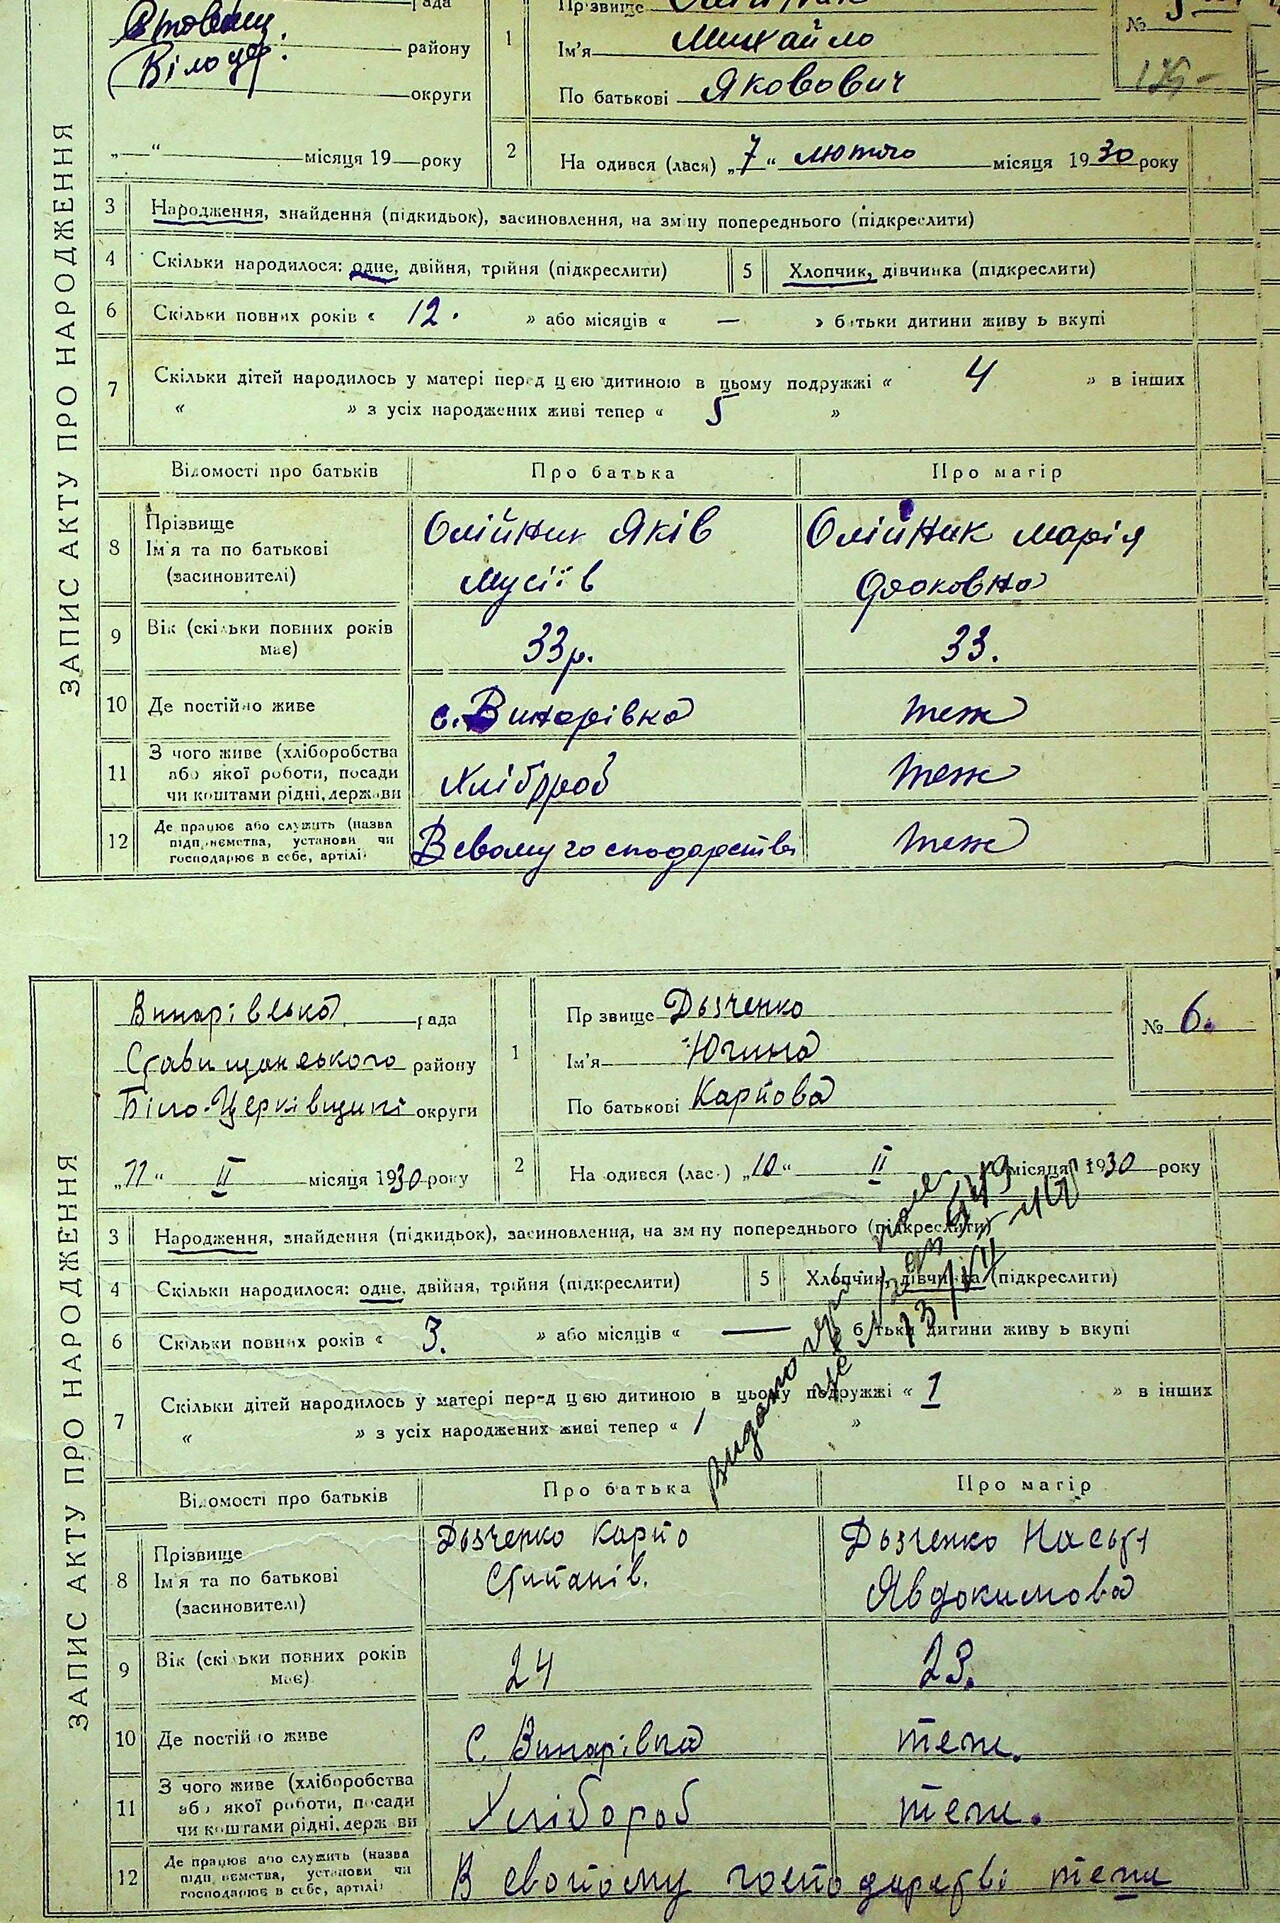 рада
Прізвище Олійник
№ 5
району
1
Ім'я Михайло
округи
По батькові Якович
„—“ місяця 19—року
2
На одився (лася) „7“ лютого місяця 1930 року
3 Народження, знайдення (підкидьок), засиновлення, на зм ну попереднього (підкреслити)
4 Скільки народилося: одне, двійня, трійня (підкреслити) 5 Хлопчик, дівчинка (підкреслити)
6 Скільки повних років « 12. » або місяців « — » б тьки дитини живу ь вкупі
7 Скільки дітей народилось у матері перед цією дитиною в цьому подружжі « 4 » в інших
« » з усіх народжених живі тепер « 5 »
Відомості про батьків Про батька Про матір
8 Прізвище Ім'я та по батькові (засиновителі)
Олійник Яків Мусіїв
Олійник Марія
9 Вік (скільки повних років має) 33р. 33.
10 Де постійно живе с. Винарівка теж
11 З чого живе (хліборобства або якої роботи, посади чи коштами рідні, держави Хлібороб теж
12 Де працює або служить (назва підприємства, установи чи господарює в себе, артілі) В свому господарстві теж
ЗАПИС АКТУ ПРО НАРОДЖЕННЯ
Винарівська рада
Ставищанського району
Біло-Церківщині округи
„11“ II місяця 1930 року
1
Пр звище Дьяченко
Ім'я Югина
По батькові Карпова
№ 6.
2 На одився (лас ) „10“ II місяця 1930 року
3 Народження, знайдення (підкидьок), засиновлення, на зм ну попереднього (підкреслити)
4 Скільки народилося: одне, двійня, трійня (підкреслити) 5 Хлопчик, дівчинка (підкреслити)
6 Скільки повних років « 3. » або місяців « — » б тьки дитини живу ь вкупі
7 Скільки дітей народилось у матері перед цією дитиною в цьому подружжі « 1 » в інших
« » з усіх народжених живі тепер « 1 »
видано
Відомості про батьків Про батька Про матір
8 Прізвище Ім'я та по батькові (засиновителі)
Дьяченко Карпо Степанів.
Дьяченко Настя Явдокимова
9 Вік (скільки повних років має) 24 23.
10 Де постійно живе с. Винарівка теж.
11 З чого живе (хліборобства або якої роботи, посади чи коштами рідні, держави Хлібороб теж.
12 Де працює або служить (назва підприємства, установи чи господарює в себе, артілі) В своєму господарстві теж
ЗАПИС АКТУ ПРО НАРОДЖЕННЯ